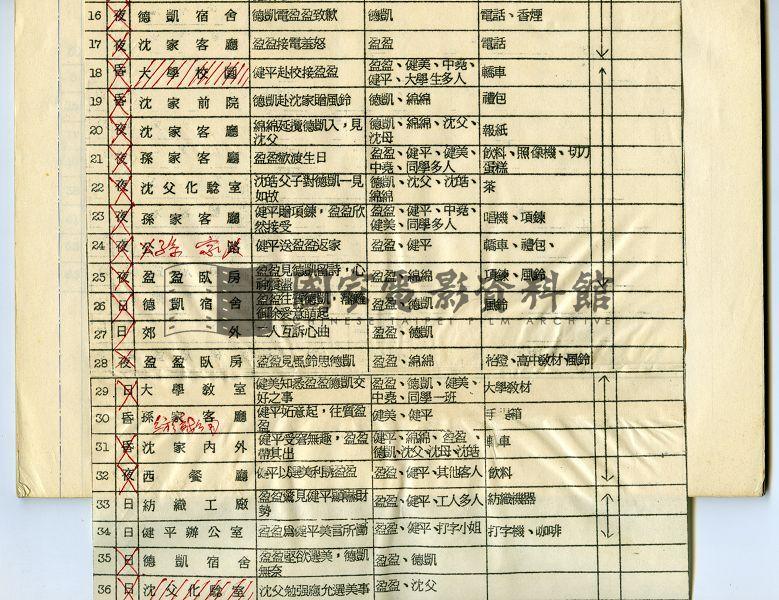 16 夜 德凱宿舍 德凱電盈盈致歉 德凱 電話、香煙
17 夜 沈家客廳 盈盈接電羞怒 盈盈 電話
18 昏 大學校園 健平赴校接盈盈 盈盈、健美、中堯、 轎車
健平、大學生多人
19 昏 沈家前院 德凱赴沈家贈風鈴 德凱、綿綿 禮包
20 夜 沈家客廳 綿綿延攬德凱入,見 德凱、綿綿、沈父、 報紙
沈父 沈母
21 夜 孫家客廳 盈盈歡渡生日 盈盈、健平、健美、 飲料、照像機、切刀
中堯、同學多人 蛋糕
22 夜 沈父化驗室 沈皓父子對德凱一見 德凱、沈父、沈皓、 茶
如故 綿綿
23 夜 孫家客廳 健平贈項鍊,盈盈欣 盈盈、健平、中堯、 唱機、項鍊
然接受 健美、同學多人
24 夜 公路 健平送盈盈返家 盈盈、健平 轎車、禮包、
25 夜 盈盈臥房 盈盈見德凱留詩,心 盈盈、綿綿 項鍊、風鈴
26 日 德凱宿舍 盈盈往晤德凱, 盈盈、德凱 風鈴
國家電影資料館
CHINESE TAIPEI FILM ARCHIVE
27 日 郊外 二人互訴心曲 盈盈、德凱
28 夜 盈盈臥房 盈盈見風鈴思德凱 盈盈、綿綿 枱燈、高中教材、風鈴
29 日 大學教室 健美知悉盈盈德凱交 盈盈、德凱、健美、 大學教材
好之事 中堯、同學一班
30 昏 孫家客廳 健平妬意起,往賀盈 健美、健平 手 箱
盈
31 昏 沈家內外 健平受窘無趣,盈盈 健平、綿綿、盈盈、 轎車
帶其出 德凱、沈父、沈母、沈皓
32 夜 西餐廳 健平以選美利誘盈盈 盈盈、健平、其他客人 飲料
33 日 紡織工廠 盈盈驚見健平顯赫財 盈盈、健平、工人多人 紡織機器
勢
34 日 健平辦公室 盈盈為健平美言所動 盈盈、健平、打字小姐 打字機、咖啡
35 日 德凱宿舍 盈盈堅欲選美,德凱 盈盈、德凱
無奈
36 日 沈父化驗室 沈父勉強應允選美事 盈盈、沈父